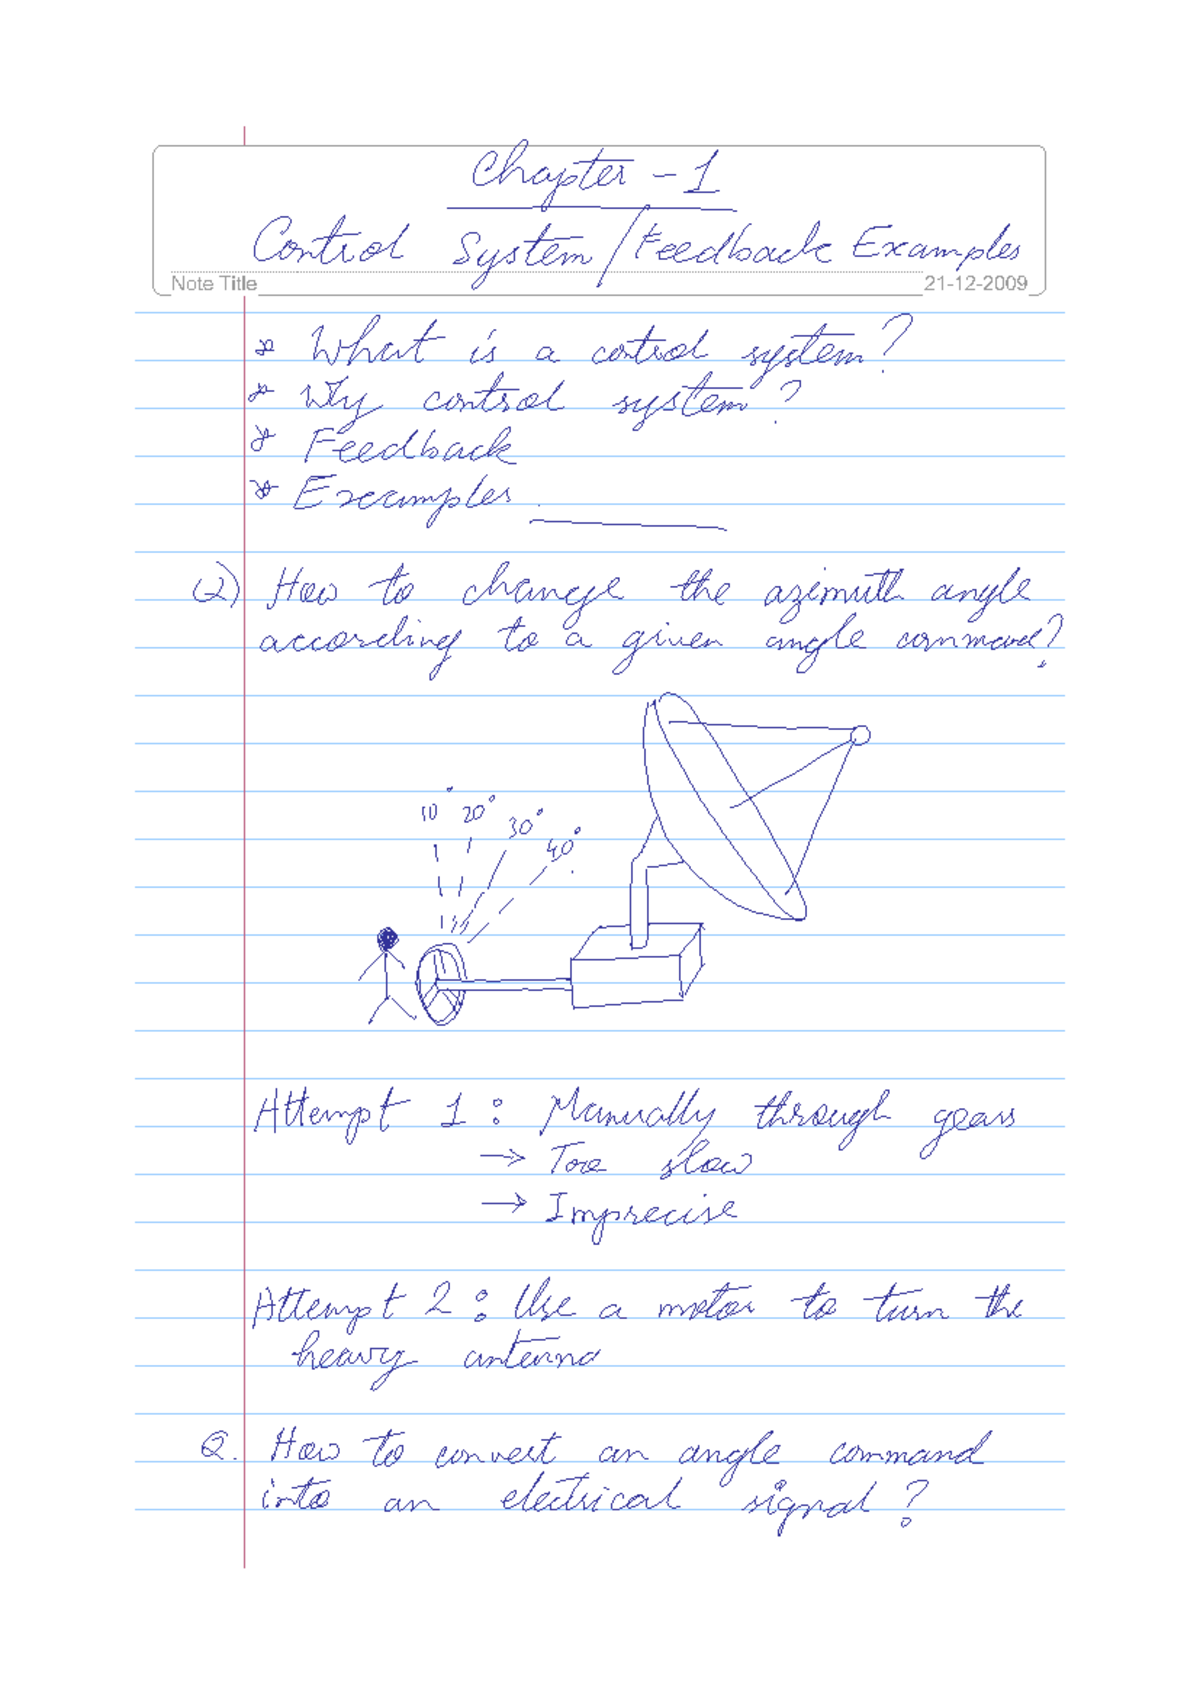 Chapter - 1
Control System/Feedback Examples
Note Title
21-12-2009
* What is a control system?
* Why control system?
* Feedback
* Examples
Q) How to change the azimuth angle
according to a given angle command?
10° 20° 30° 40°
Attempt 1 : Manually through gears
→ Too slow
→ Imprecise
Attempt 2 : Use a motor to turn the
heavy antenna
Q. How to convert an angle command
into an electrical signal?